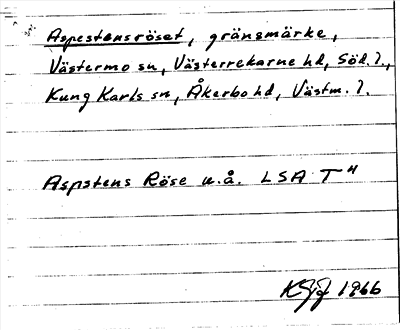 Aspestensröset, gränsmärke,
Västermo sn, Västerrekarne hd, Söd. l.,
Kung Karls sn, Åkerbo hd, Västm. l.
Aspstens Röse u.å. LSA T"
1966